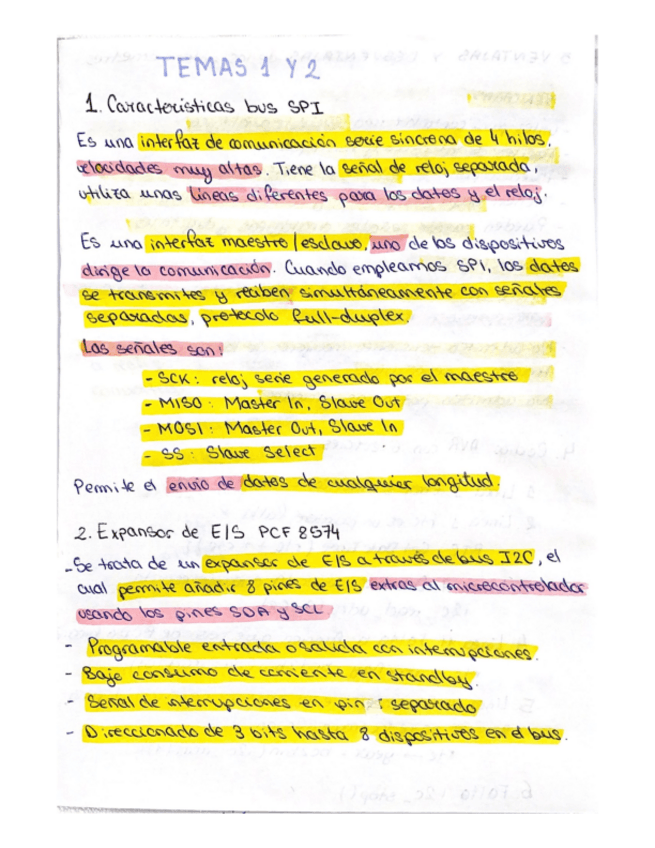 TEMAS 1 Y 2
1. Características bus SPI
Es una interfaz de comunicación serie síncrona de 4 hilos,
velocidades muy altas. Tiene la señal de reloj separada,
utiliza unas líneas diferentes para los datos y el reloj.
Es una interfaz maestro/esclavo, uno de los dispositivos
dirige la comunicación. Cuando empleamos SPI, los datos
se transmites y reciben simultáneamente con señales
separadas, protocolo full-duplex.
Las señales son:
- SCK: reloj serie generado por el maestro
- MISO: Master In, Slave Out
- MOSI: Master Out, Slave In
- SS: Slave Select
Permite el envio de datos de cualquier longitud.
2. Expansor de E/S PCF 8574
- Se trata de un expansor de E/S a través de bus I2C, el
cual permite añadir 8 pines de E/S extras al microcontrolador
usando los pines SDA y SCL.
- Programable entrada o salida con interrupciones.
- Bajo consumo de corriente en standby.
- Señal de interrupciones en pin separado
- Direccionado de 3 bits hasta 8 dispositivos en el bus.